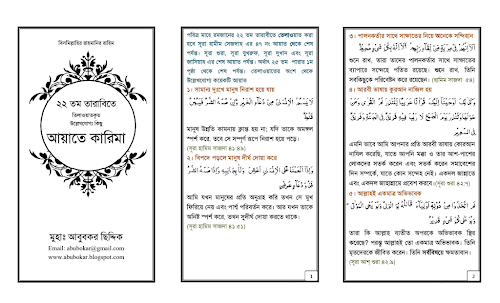 বিসমিল্লাহির রাহমানির রাহিম
২২ তম তারাবিতে
তিলাওয়াতকৃত
উল্লেখযোগ্য কিছু
আয়াতে কারিমা
মুহাঃ আবুবকর ছিদ্দিক
Email: abubokar@gmail.com
www.abubokar.blogspot.com
পবিত্র মাহে রমজানের ২২ তম তারাবীতে তেলাওয়াত করা
হবে সূরা হামীম সেজদাহ এর ৪৭ নং আয়াত থেকে শেষ
পর্যন্ত। সূরা শুরা, সূরা যুখরুফ, সূরা দুখান এবং সূরা
জাসিয়াহ এর শেষ আয়াত পর্যন্ত। অর্থাৎ ২৫ তম পারার ১ম
পৃষ্ঠা থেকে শেষ পর্যন্ত। তেলাওয়াতের অংশ থেকে
উল্লেখযোগ্য কয়েকটি আয়াত
১। সামান্য দুঃখে মানুষ নিরাশ হয়ে যায়
لَا يَسْأَمُ الْإِنْسَانُ مِنْ دُعَاءِ الْخَيْرِ وَإِنْ مَسَّهُ الشَّرُّ فَيَئُوسٌ
قَنُوطٌ
মানুষ উন্নতি কামনায় ক্লান্ত হয় না; যদি তাকে অমঙ্গল
স্পর্শ করে, তবে সে সম্পূর্ণ রূপে নিরাশ হয়ে পড়ে।
(সূরা হামিম সাজদা ৪১:৪৯)
২। বিপদে পড়লে মানুষ দীর্ঘ দোয়া করে
وَإِذَا أَنْعَمْنَا عَلَى الْإِنْسَانِ أَعْرَضَ وَنَأَى بِجَانِبِهِ وَإِذَا مَسَّهُ الشَّرُّ
فَذُو دُعَاءٍ عَرِيضٍ
আমি যখন মানুষের প্রতি অনুগ্রহ করি তখন সে মুখ
ফিরিয়ে নেয় এবং পার্শ্ব পরিবর্তন করে। আর যখন তাকে
অনিষ্ট স্পর্শ করে, তখন সুদীর্ঘ দোয়া করতে থাকে।
(সূরা হামিম সাজদা ৪১:৫১)
1
৩। পালনকর্তার সাথে সাক্ষাতের নিয়ে অনেকে সন্দিহান
أَلَا إِنَّهُمْ فِي مِرْيَةٍ مِنْ لِقَاءِ رَبِّهِمْ أَلَا إِنَّهُ بِكُلِّ شَيْءٍ مُحِيطٌ
শুনে রাখ, তারা তাদের পালনকর্তার সাথে সাক্ষাতের
ব্যাপারে সন্দেহে পতিত রয়েছে। শুনে রাখ, তিনি
সবকিছুকে পরিবেষ্টন করে রয়েছেন। (হামিম সাজদা ৫৪)
৪। আরবী ভাষায় কুরআন নাজিল হয়
وَكَذَلِكَ أَوْحَيْنَا إِلَيْكَ قُرْآنًا عَرَبِيًّا لِتُنْذِرَ أُمَّ الْقُرَى وَمَنْ
حَوْلَهَا وَتُنْذِرَ يَوْمَ الْجَمْعِ لَا رَيْبَ فِيهِ فَرِيقٌ فِي الْجَنَّةِ وَفَرِيقٌ
فِي السَّعِيرِ
এমনি ভাবে আমি আপনার প্রতি আরবী ভাষায় কোরআন
নাযিল করেছি, যাতে আপনি মক্কা ও তার আশ-পাশের
লোকদের সতর্ক করেন এবং সতর্ক করেন সমাবেশের
দিন সম্পর্কে, যাতে কোন সন্দেহ নেই। একদল জান্নাতে
এবং একদল জাহান্নামে প্রবেশ করবে। (সূরা শুরা ৪২:৭)
৫। আল্লাহই একমাত্র অভিভাবক
أَمِ اتَّخَذُوا مِنْ دُونِهِ أَوْلِيَاءَ فَاللَّهُ هُوَ الْوَلِيُّ وَهُوَ يُحْيِي الْمَوْتَى
وَهُوَ عَلَى كُلِّ شَيْءٍ قَدِيرٌ
তারা কি আল্লাহ ব্যতীত অপরকে অভিভাবক স্থির
করেছে? পরন্তু আল্লাহই তো একমাত্র অভিভাবক। তিনি
মৃতদেরকে জীবিত করেন। তিনি সর্ববিষয়ে ক্ষমতাবান।
(সূরা আশ্ শুরা ৪২:৯)
2